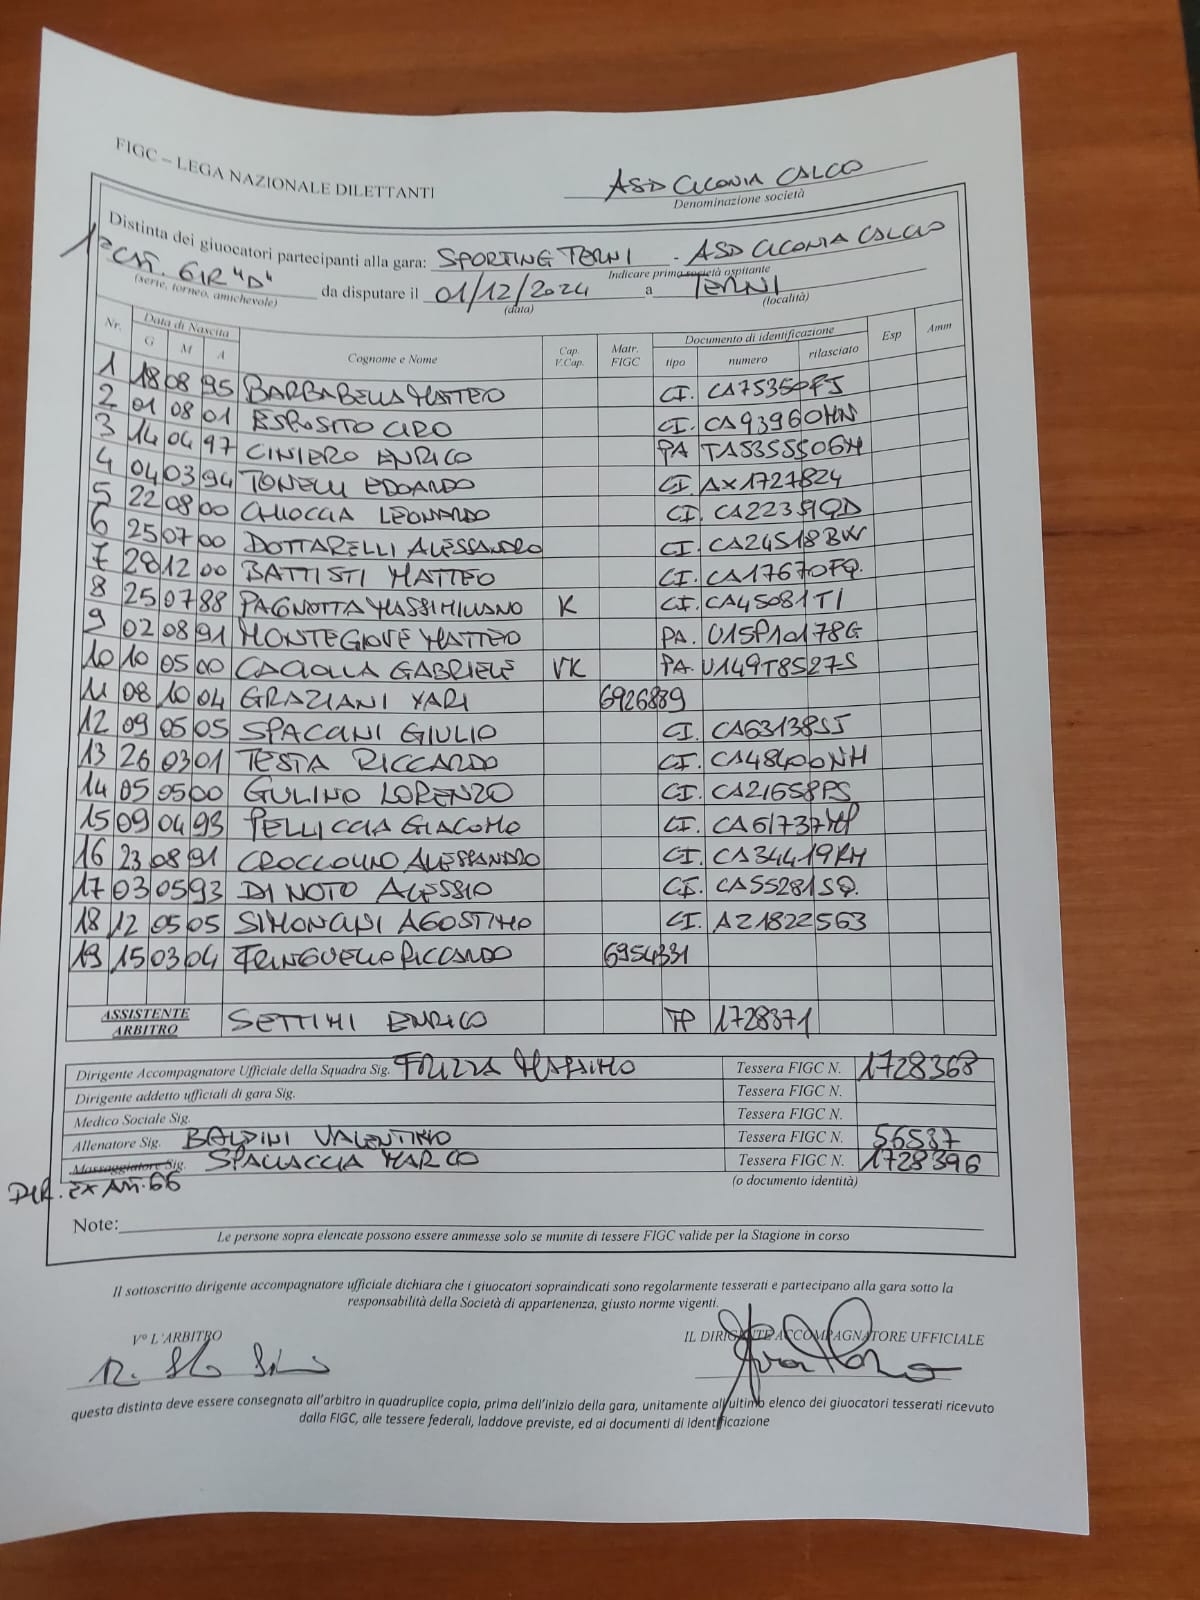 FIGC – LEGA NAZIONALE DILETTANTI
ASD CICONIA CALCIO
Denominazione società
Distinta dei giuocatori partecipanti alla gara: SPORTING TERNI - ASD CICONIA CALCIO
Indicare prima società ospitante
1ª CAT. GIR "D" da disputare il 01/12/2024 a TERNI
(serie, torneo, amichevole) (data) (località)
Nr. Data di Nascita Cognome e Nome Cap. V.Cap. Matr. FIGC Documento di identificazione Esp Amm
G M A tipo numero rilasciato
1 18 08 95 BARBABELLA MATTEO CI. CA75350FJ
2 01 08 01 ESPOSITO CIRO CI. CA93960HN
3 14 04 97 CINIERO ENRICO PA TA5355506M
4 04 03 94 TONELLI EDOARDO CI. AX1727824
5 22 08 00 CHIOCCIA LEONARDO CI.
6 25 07 00 DOTTARELLI ALESSANDRO CI. CA24518BW
7 28 12 00 BATTISTI MATTEO CI. CA17670FQ.
8 25 07 88 PAGNOTTA MASSIMILIANO K CI. CA45081TI
9 02 08 91 MONTEGIOVE MATTEO PA. U15P10178G
10 10 05 00 CACIOLLA GABRIELE VK PA. U149T8527S
11 08 10 04 GRAZIANI YARI 6926889
12 09 05 05 SPACANI GIULIO CI. CA63138SJ
13 26 03 01 TESTA RICCARDO CI. CA48400NH
14 05 05 00 GULINO LORENZO CI. CA21658PS
15 09 04 93 PELLICCIA GIACOMO CI.
16 23 08 91 CROCCOLINO ALESSANDRO CI. CA34419RH
17 03 05 93 DI NOTO ALESSIO CI. CA55281SQ.
18 12 05 05 SIMONCINI AGOSTINO CI. AZ1822563
19 15 03 04 FRINGUELLO RICCARDO 6954331
ASSISTENTE ARBITRO SETTIMI ENRICO TP 1728371
Dirigente Accompagnatore Ufficiale della Squadra Sig. FRIZZA MASSIMO Tessera FIGC N. 1728368
Dirigente addetto ufficiali di gara Sig. Tessera FIGC N.
Medico Sociale Sig. Tessera FIGC N.
Allenatore Sig. BALDINI VALENTINO Tessera FIGC N. 56537
Massaggiatore Sig. SPACIACCIA MARCO Tessera FIGC N. 1728396
DIR. EX ART. 66 (o documento identità)
Note:
Le persone sopra elencate possono essere ammesse solo se munite di tessere FIGC valide per la Stagione in corso
Il sottoscritto dirigente accompagnatore ufficiale dichiara che i giuocatori sopraindicati sono regolarmente tesserati e partecipano alla gara sotto la
responsabilità della Società di appartenenza, giusto norme vigenti.
V° L'ARBITRO IL DIRIGENTE ACCOMPAGNATORE UFFICIALE
questa distinta deve essere consegnata all'arbitro in quadruplice copia, prima dell'inizio della gara, unitamente all'ultimo elenco dei giuocatori tesserati ricevuto
dalla FIGC, alle tessere federali, laddove previste, ed ai documenti di identificazione